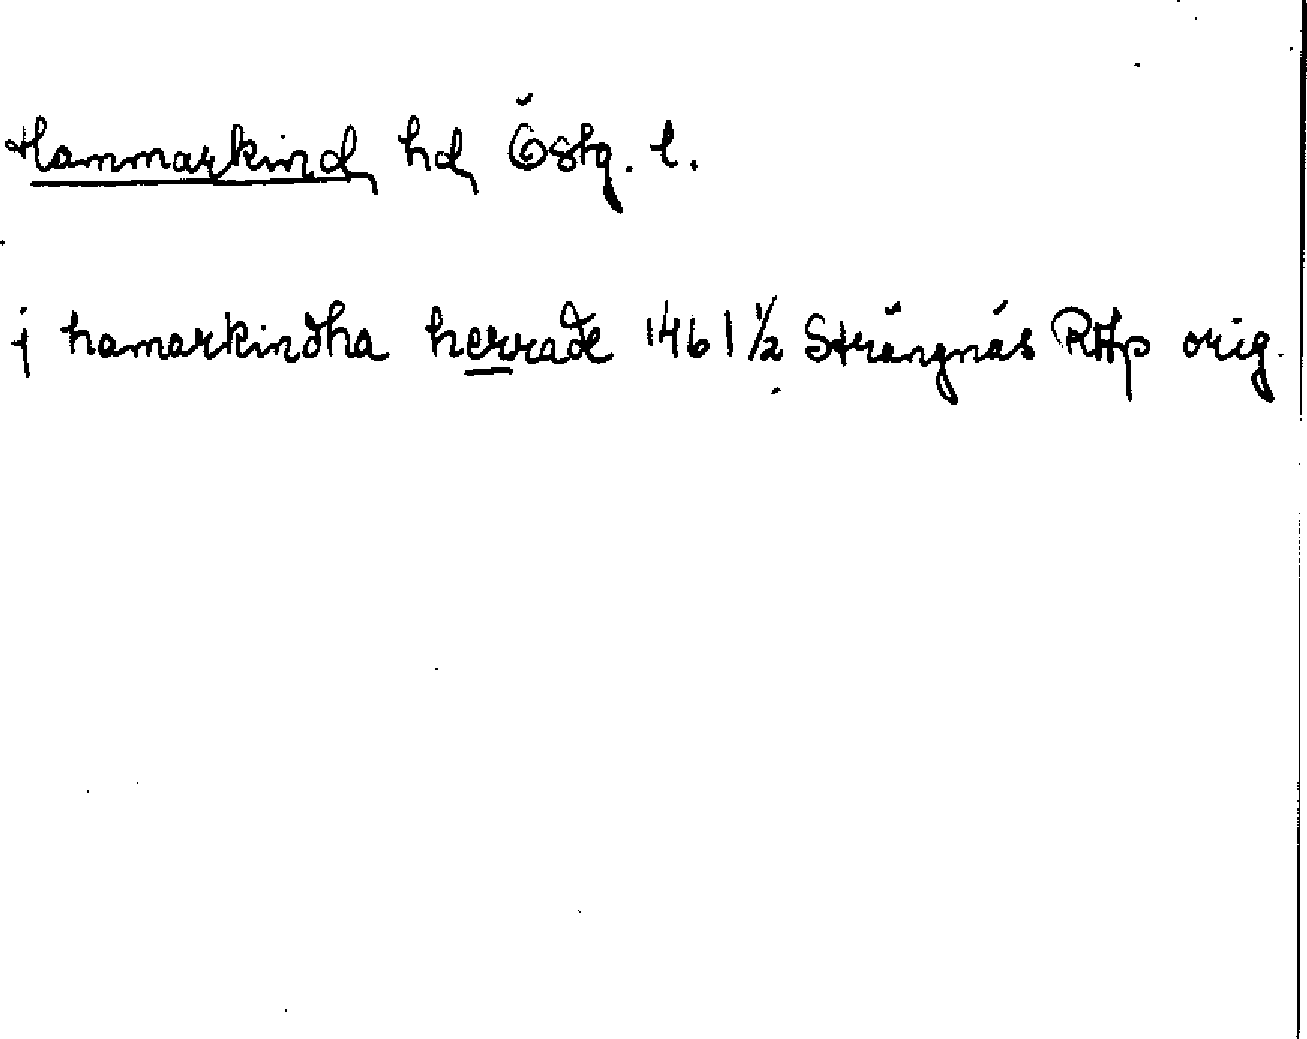 Hammarkind hd Östg. l.
j hamarkindha herrade 1461 1/2 Strängnäs RAp orig.